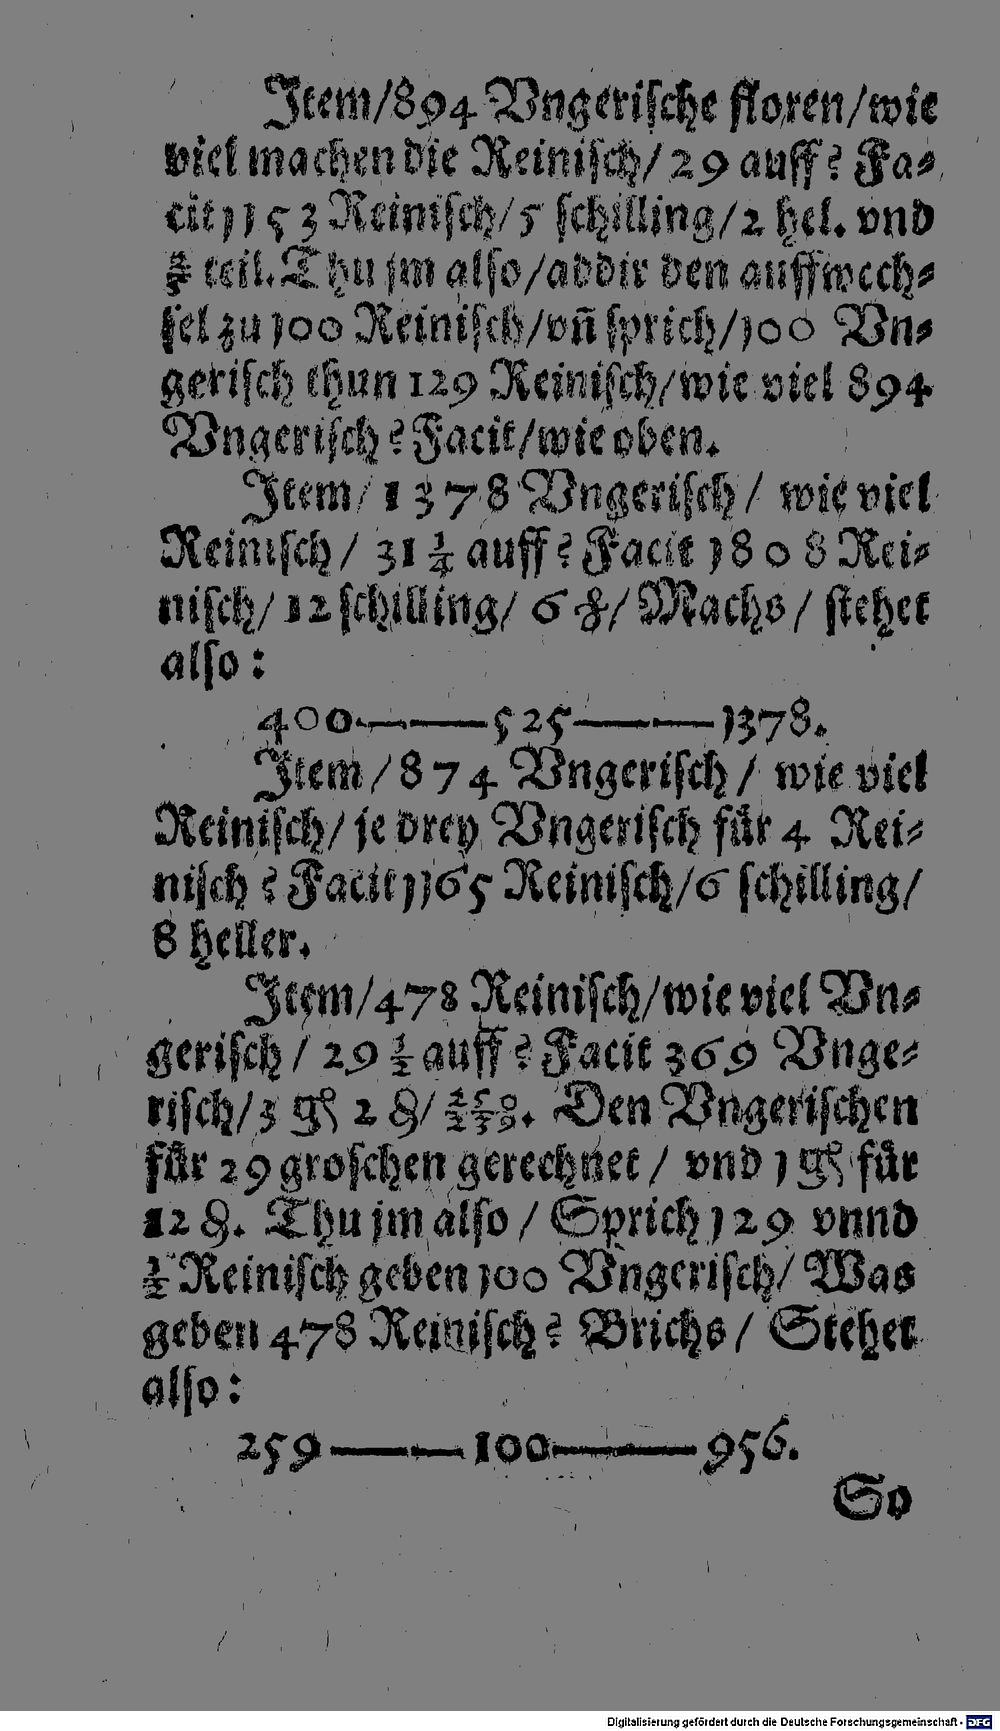 Item/894 Vngeriſche floren/wie
viel machen die Reiniſch/ 29 auff? Fa⸗
cit 1153 Reiniſch/5 ſchilling/2 hel. vnd
⅖ teil. Thu jm alſo/addir den auffwech⸗
ſel zu 100 Reiniſch/vñ ſprich/100 Vn⸗
geriſch thun 129 Reiniſch/wie viel 894
Vngeriſch? Facit/wie oben.
Item/ 1378 Vngeriſch/ wie viel
Reiniſch/ 31 ¼ auff? Facit 1808 Rei⸗
niſch/ 12 ſchilling/ 6 ₰/ Machs/ ſtehet
alſo:
400——525——1378.
Item/874 Vngeriſch/ wie viel
Reiniſch/ je drey Vngeriſch für 4 Rei⸗
niſch? Facit 1165 Reiniſch/6 ſchilling/
8 heller.
Item/478 Reiniſch/wie viel Vn⸗
geriſch/ 29 ½ auff? Facit 369 Vnge⸗
riſch/3 gſ 2 ₰/ 250/259. Den Vngeriſchen
für 29 groſchen gerechnet/ vnd 1 gſ für
12 ₰. Thu jm alſo/ Sprich 129 vnnd
½ Reiniſch geben 100 Vngeriſch/ Was
geben 478 Reiniſch? Brichs/ Stehet
alſo:
259——100——956.
So
Digitalisierung gefördert durch die Deutsche Forschungsgemeinschaft - DFG